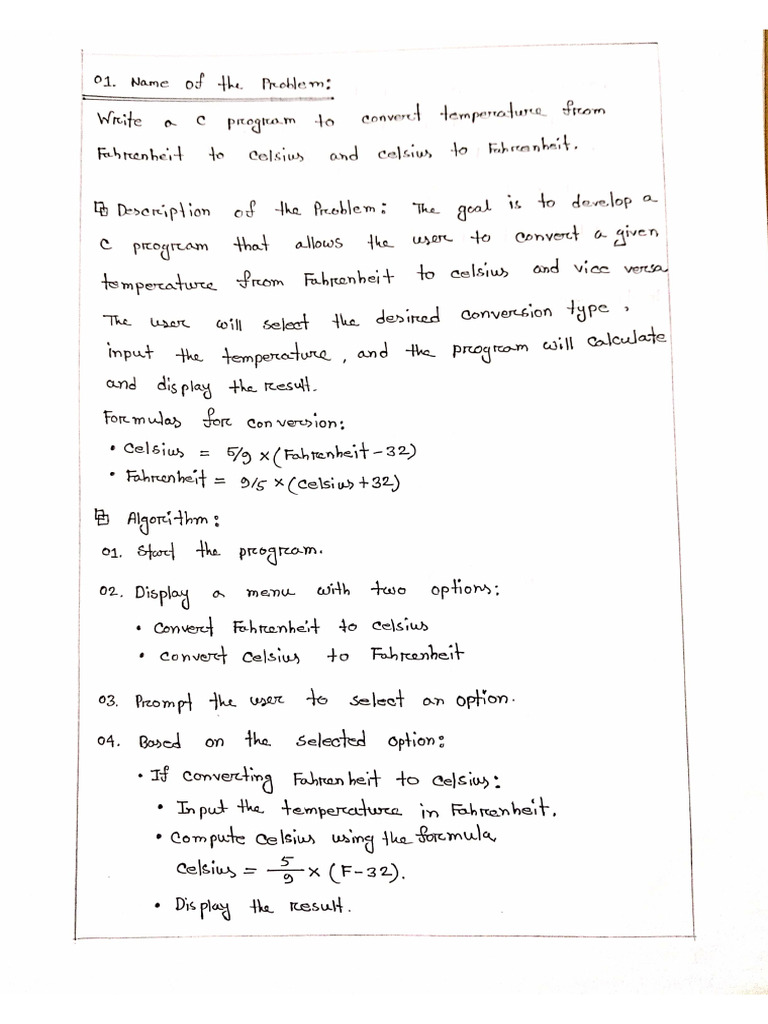 01. Name of the Problem:
Write a C program to convert temperature from
Fahrenheit to Celsius and Celsius to Fahrenheit.
Description of the Problem: The goal is to develop a
C program that allows the user to convert a given
temperature from Fahrenheit to Celsius and vice versa
The user will select the desired conversion type,
input the temperature, and the program will calculate
and display the result.
Formulas for conversion:
• Celsius = 5/9 × (Fahrenheit - 32)
• Fahrenheit = 9/5 × (Celsius + 32)
Algorithm:
01. Start the program.
02. Display a menu with two options:
• Convert Fahrenheit to Celsius
• Convert Celsius to Fahrenheit
03. Prompt the user to select an option.
04. Based on the selected option:
• If converting Fahrenheit to Celsius:
• Input the temperature in Fahrenheit.
• Compute Celsius using the formula
Celsius = 5/9 × (F-32).
• Display the result.